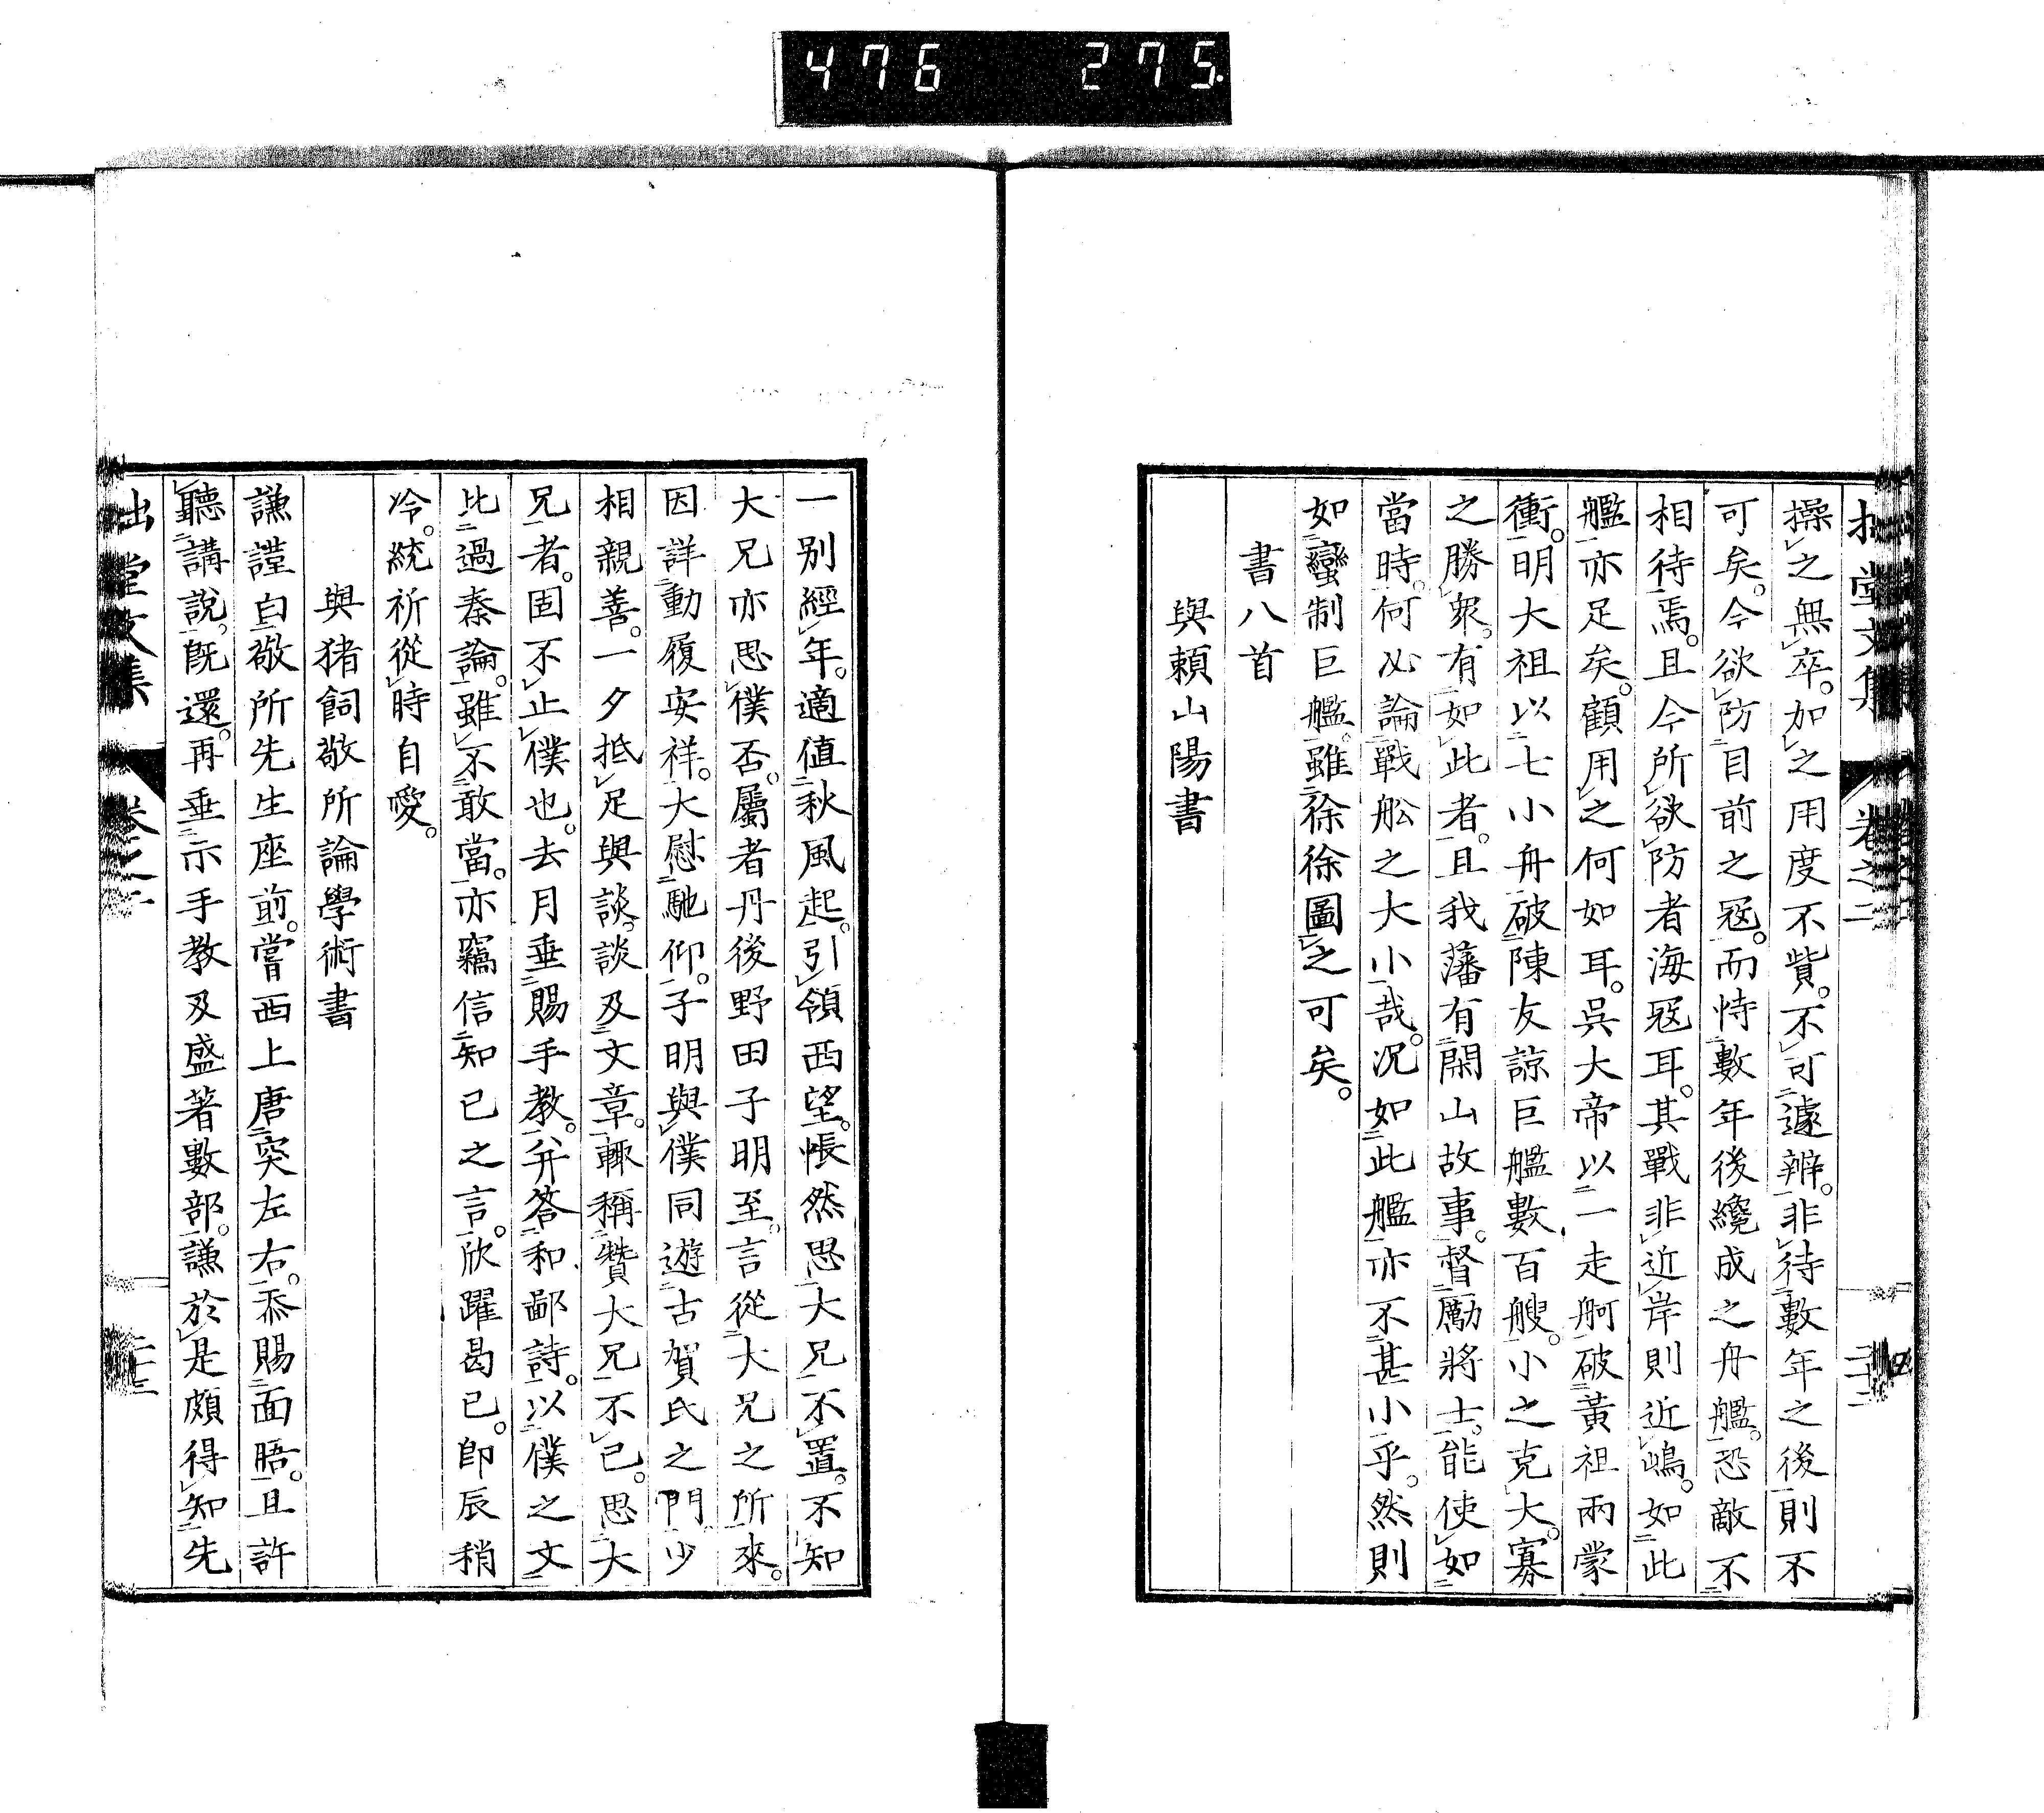 476 275
拙堂文集 卷之二
操之無卒。加之用度不貲。不可遽辨。非待數年之後則不
可矣。今欲防目前之冦。而恃數年後纔成之舟艦。恐敵不
相待焉。且今所欲防者海冦耳。其戰非近岸則近嶋。如此
艦亦足矣。顧用之何如耳。吳大帝以一走舸破黃祖兩蒙
衝。明大祖以七小舟破陳友諒巨艦數百艘。小之克大。寡
之勝衆。有如此者。且我藩有閑山故事。督勵將士。能使如
當時。何必論戰舩之大小哉。况如此艦亦不甚小乎。然則
如蠻制巨艦。雖徐徐圖之可矣。
書八首
與賴山陽書
一別經年。適値秋風起。引領西望。悵然思大兄不置。不知
大兄亦思僕否。屬者丹後野田子明至。言從大兄之所來。
因詳動履安祥。大慰馳仰。子明與僕同遊古賀氏之門。少
相親善。一夕抵足與談。談及文章。輙稱贊大兄不已。思大
兄者。固不止僕也。去月垂賜手教。幷答和鄙詩。以僕之文
比過秦論。雖不敢當。亦竊信知己之言。欣躍曷已。卽辰稍
冷。統祈從時自愛。
與猪飼敬所論學術書
謙謹白敬所先生座前。嘗西上唐突左右。忝賜面晤。且許
聽講說。旣還。再垂示手教及盛著數部。謙於是頗得知先
拙堂文集 卷之二 二十三